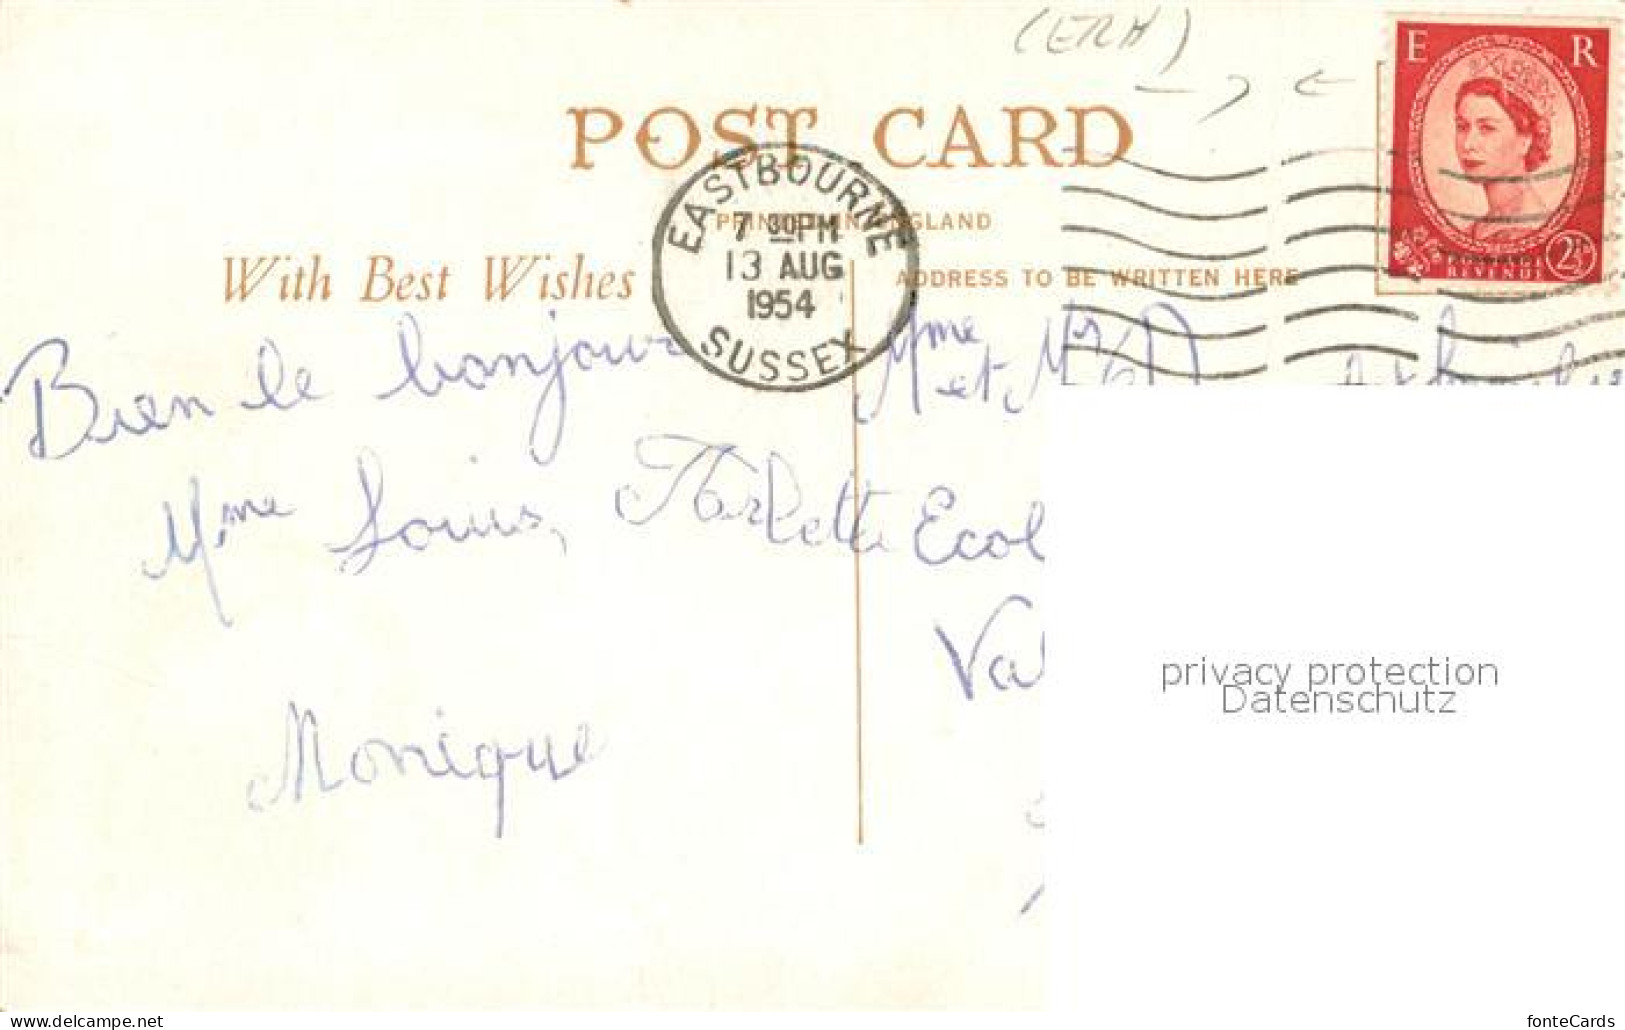 (ERH)
E R
POST CARD
EASTBOURNE
7 30PM
13 AUG
1954
SUSSEX
PRINTED IN ENGLAND
REVENUE 2½D
With Best Wishes
ADDRESS TO BE WRITTEN HERE
Bien le bonjour
Mme
et Mr
Mme Louis, Arlette
Ecol
Va
Monique
privacy protection
Datenschutz
www.delcampe.net
fonteCards